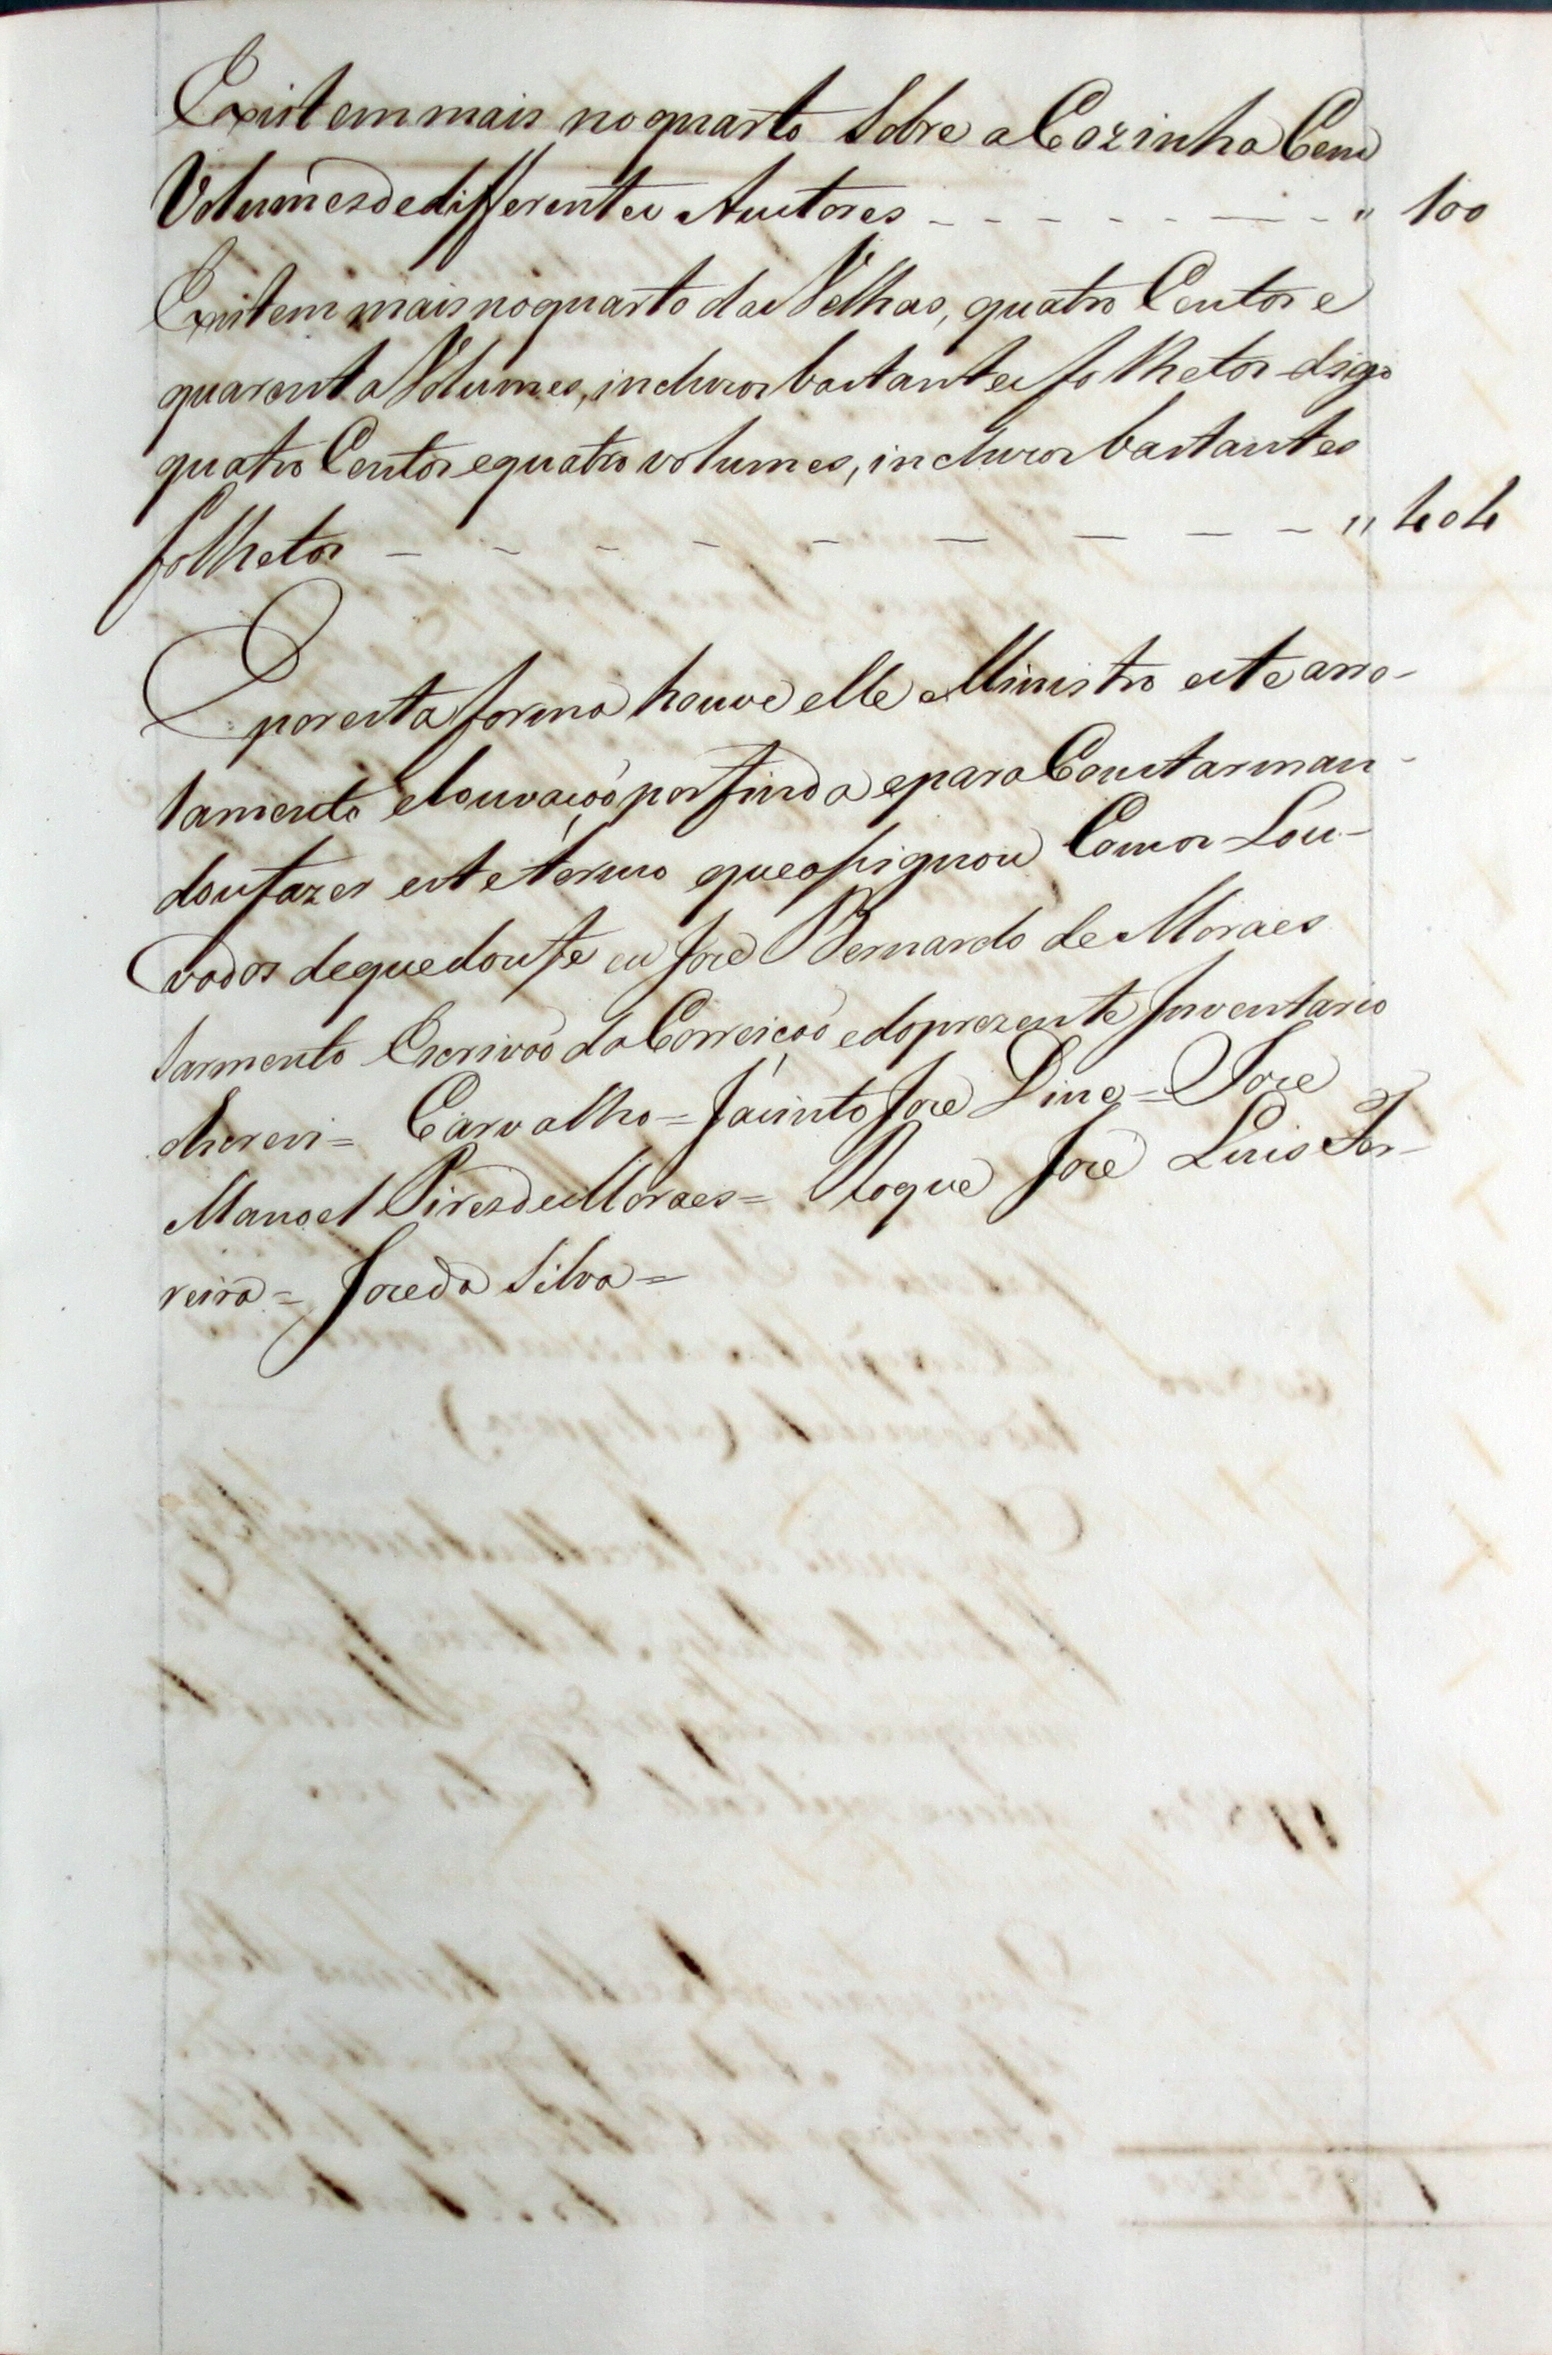 Existem mais no quarto Sobre a Cozinha Cem
Volumes de differentes Auctores - - - - - - - - " 100
Existem mais no quarto das Velhas, quatro Centos e
quarenta Volumes, incluzos bastantes folhetos digo
quatro Centos e quatro volumes, incluzos bastantes
folhetos - - - - - - - - - " 404
E por esta forma houve elle Ministro este arro-
lamento e louvação por finda e para Constar man-
dou fazer este termo que assignou Com os Lou-
vados de que dou fe eu Joze Bernardo de Moraes
Sarmento Escrivão da Correição e do prezente Inventario
o escrevi = Carvalho = Jacinto Joze Dine = Joze
Manoel Pires de Moraes = Roque Joze Luis Fer-
reira = Joze da Silva =